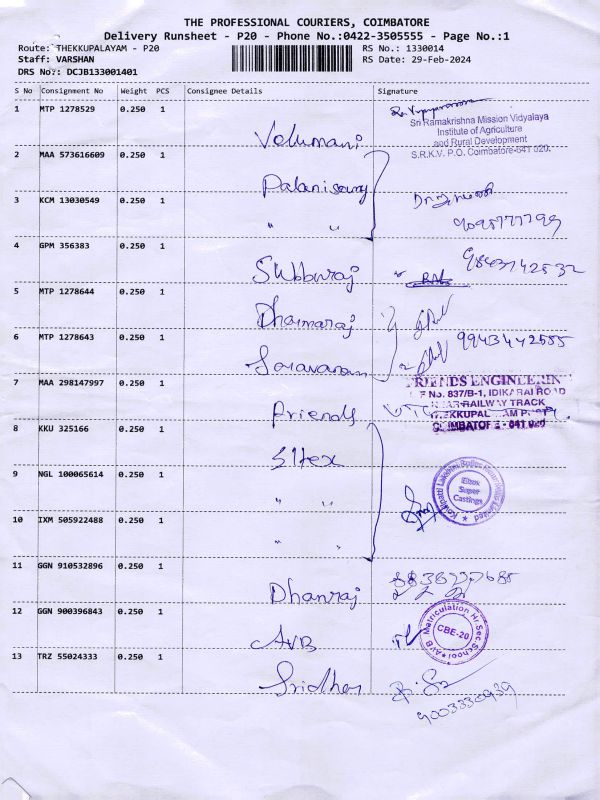 THE PROFESSIONAL COURIERS, COIMBATORE
Delivery Runsheet - P20 - Phone No.:0422-3505555 - Page No.:1
Route: THEKKUPALAYAM - P20
RS No.: 1330014
Staff: VARSHAN
RS Date: 29-Feb-2024
DRS No:: DCJB133001401
S No Consignment No Weight PCS Consignee Details Signature
1 MTP 1278529 0.250 1 Velumani
Sri Ramakrishna Mission Vidyalaya
Institute of Agriculture
and Rural Development
S.R.K.V. P.O. Coimbatore-641 020.
2 MAA 573616609 0.250 1 Palanisamy
3 KCM 13030549 0.250 1 " "
4 GPM 356383 0.250 1 Subburaj 9843742532
5 MTP 1278644 0.250 1 Dharmaraj
6 MTP 1278643 0.250 1 Saravanan 9943442555
7 MAA 298147997 0.250 1 Friends
FRIENDS ENGINEERIN
F No. 837/B-1, IDIKARAI ROAD
NEAR RAILWAY TRACK
COIMBATORE - 641 020
8 KKU 325166 0.250 1 Sitex
9 NGL 100065614 0.250 1 " "
Elbex
Super
Castings
10 IXM 505922488 0.250 1 " "
11 GGN 910532896 0.250 1 Dhanraj
12 GGN 900396843 0.250 1 AVB
AVB Matriculation Hr Sec School
CBE-20
13 TRZ 55024333 0.250 1 Sridher
9003330939